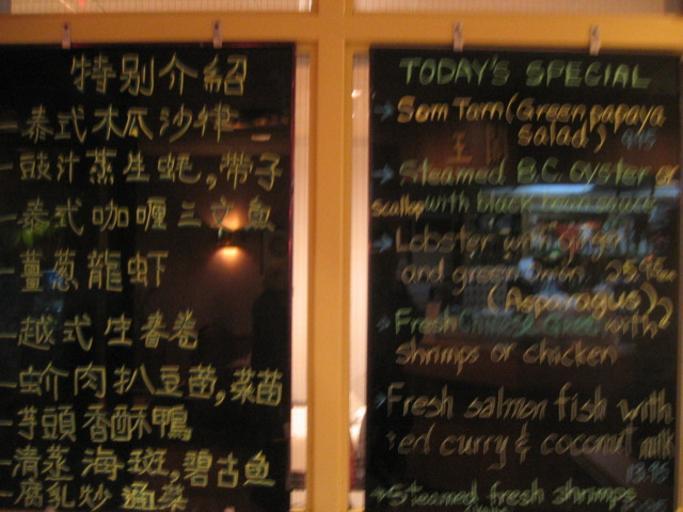 特別介紹
-泰式木瓜沙律
-豉汁蒸生蚝,帶子
-泰式咖喱三文魚
-薑葱龍虾
-越式生春卷
-蚧肉扒豆苗,菜苗
-芋頭香酥鴨
-清蒸海斑,碧古魚
-腐乳炒通菜
TODAY'S SPECIAL
→ Som Tam (Green papaya
salad) 9.95
→ Steamed B.C. oyster or
scallop with black bean sauce
→ Lobster with ginger
and green onion 25.95
(Asparagus)
→ Fresh with
shrimps or chicken
Fresh salmon fish with
red curry & coconut milk
13.95
→ Steamed fresh shrimps